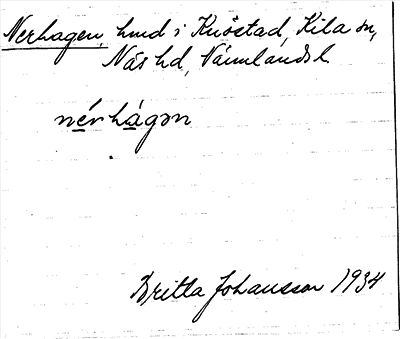 Nerhagen, hmd i Knöstad, Kila sn,
Näs hd, Värmlands l
nérhágən
Britta Johansson 1934